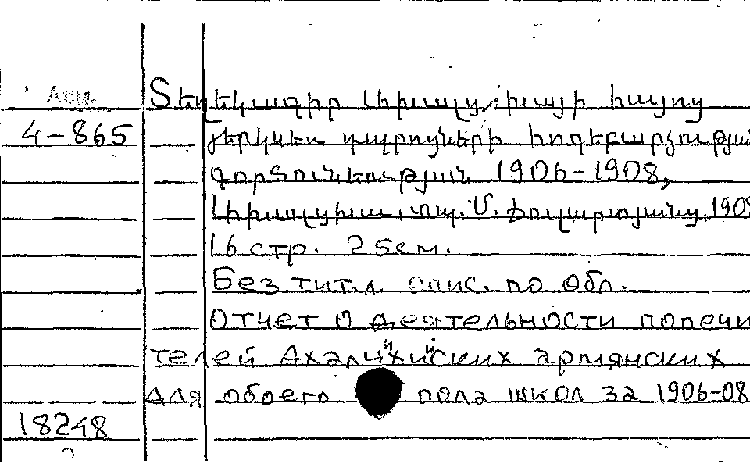 Арм.
Տեղեկագիր Ախալցխայի հայոց
4-865 երկսեռ դպրոցների հոգեբարձության
գործունեության 1906-1908,
Ախալցխա, տպ. Մ. 1908
16 стр. 25 см.
Без тит.л. опис. по обл.
Отчет о деятельности попечи
телей Ахалцихских армянских
для обоего пола школ за 1906-08
18248